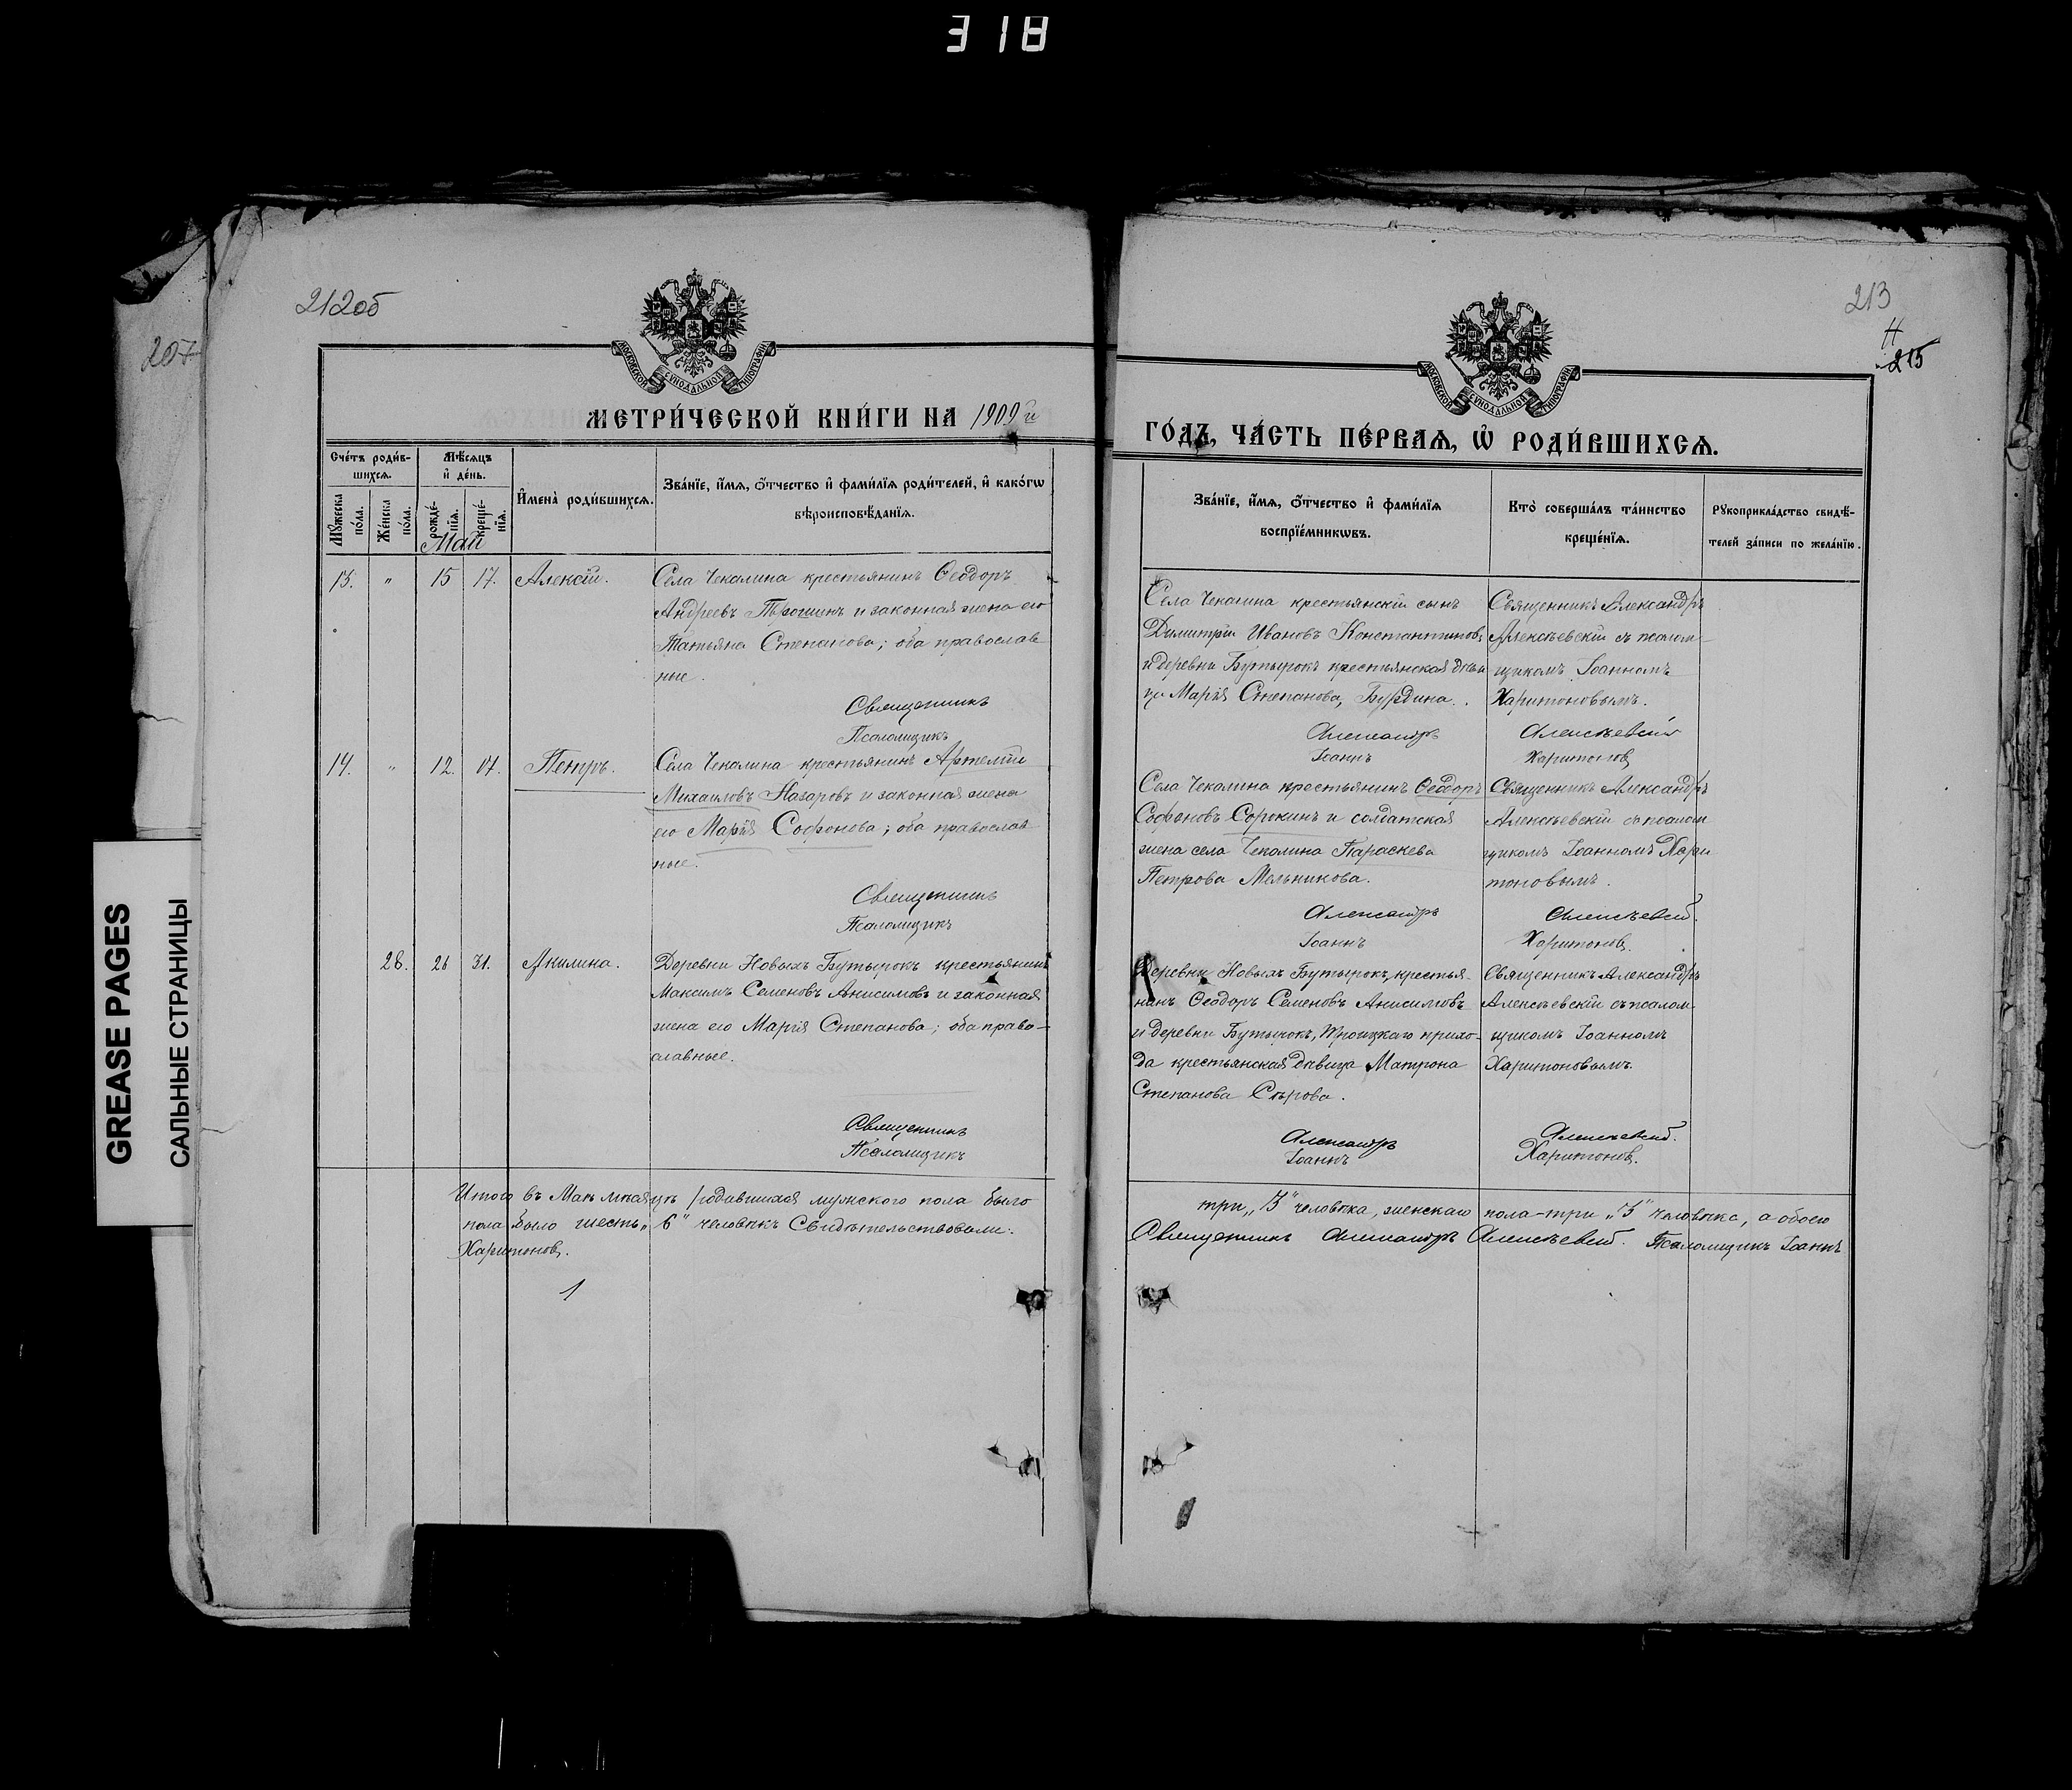 318
212об
207
213
Н
215
МОСКОВСКОЙ СѴНОДАЛЬНОЙ ТИПОГРАФІИ
МЕТРИ́ЧЕСКОЙ КНИ́ГИ НА 1909 й
Сче́тъ роди́в-
шихсѧ.
Мꙋ́жеска по́ла.
Же́нска по́ла.
Мѣ́сѧцъ
и҆ де́нь.
рожде́-
нїѧ.
креще́-
нїѧ.
Май
И҆мена̀ роди́вшихсѧ.
Зва́нїе, и҆́мѧ, ѻ҆́тчество и҆ фами́лїѧ роди́телей, и҆ како́гѡ
вѣроисповѣ́данїѧ.
13. " 15 17. Алексій.
Села Чекалина крестьянинъ Ѳеодоръ
Андреевъ и законная жена его
Татьяна Степанова; оба православ
ные.
Священникъ
Псаломщикъ
14. " 12. 17. Петръ.
Села Чекалина крестьянинъ Артемій
Михаиловъ Назаровъ и законная жена
его Марія Софонова; оба православ
ные.
Священникъ
Псаломщикъ
28. 26 31. Акилина.
Деревни Новыхъ Бутырокъ крестьянинъ
Максимъ Семеновъ Анисимовъ и законная
жена его Марія Степанова; оба право-
славные.
Священникъ
Псаломщикъ
Итого въ Маѣ мѣсяцѣ родившихся мужского пола было
пола было шесть "6" человѣкъ Свидѣтельствовали:
Харитоновъ.
1
МОСКОВСКОЙ СѴНОДАЛЬНОЙ ТИПОГРАФІИ
ГО́ДЪ, ЧА́СТЬ ПЕ́РВАѦ, Ѡ҆ РОДИ́ВШИХСѦ.
Зва́нїе, и҆́мѧ, ѻ҆́тчество и҆ фами́лїѧ
воспрїе́мникѡвъ.
Кто̀ соверша́лъ та́инство
креще́нїѧ.
Рꙋкоприкла́дство свидѣ́-
телей за́писи по жела́нїю.
Села Чекалина крестьянскій сынъ
Димитрій Ивановъ Константиновъ
и деревни Бутырокъ крестьянская дѣви
ца Марія Степанова Бурдина.
Священникъ Александръ
Алексѣевскій съ псалом-
щикомъ Іоанномъ
Харитоновымъ.
Александръ Алексѣевскій
Іоаннъ Харитоновъ
Села Чекалина крестьянинъ Ѳеодоръ
Софоновъ Сорокинъ и солдатская
жена села Чекалина Параскева
Петрова Мельникова.
Священникъ Александръ
Алексѣевскій съ псалом
щикомъ Іоанномъ Хари
тоновымъ.
Александръ Алексѣевскій.
Іоаннъ Харитоновъ.
Деревни Новыхъ Бутырокъ, крестья-
нинъ Ѳеодоръ Семеновъ Анисимовъ
и деревни Бутырокъ, Троицкаго прихо-
да крестьянская дѣвица Матрона
Степанова Сѣрова.
Священникъ Александръ
Алексѣевскій съ псалом-
щикомъ Іоанномъ
Харитоновымъ.
Александръ Алексѣевскій.
Іоаннъ Харитоновъ.
три "3" человѣка, женскаго пола-три "3" человѣка, а обоего
Священникъ Александръ Алексѣевскій. Псаломщикъ Іоаннъ
GREASE PAGES
САЛЬНЫЕ СТРАНИЦЫ